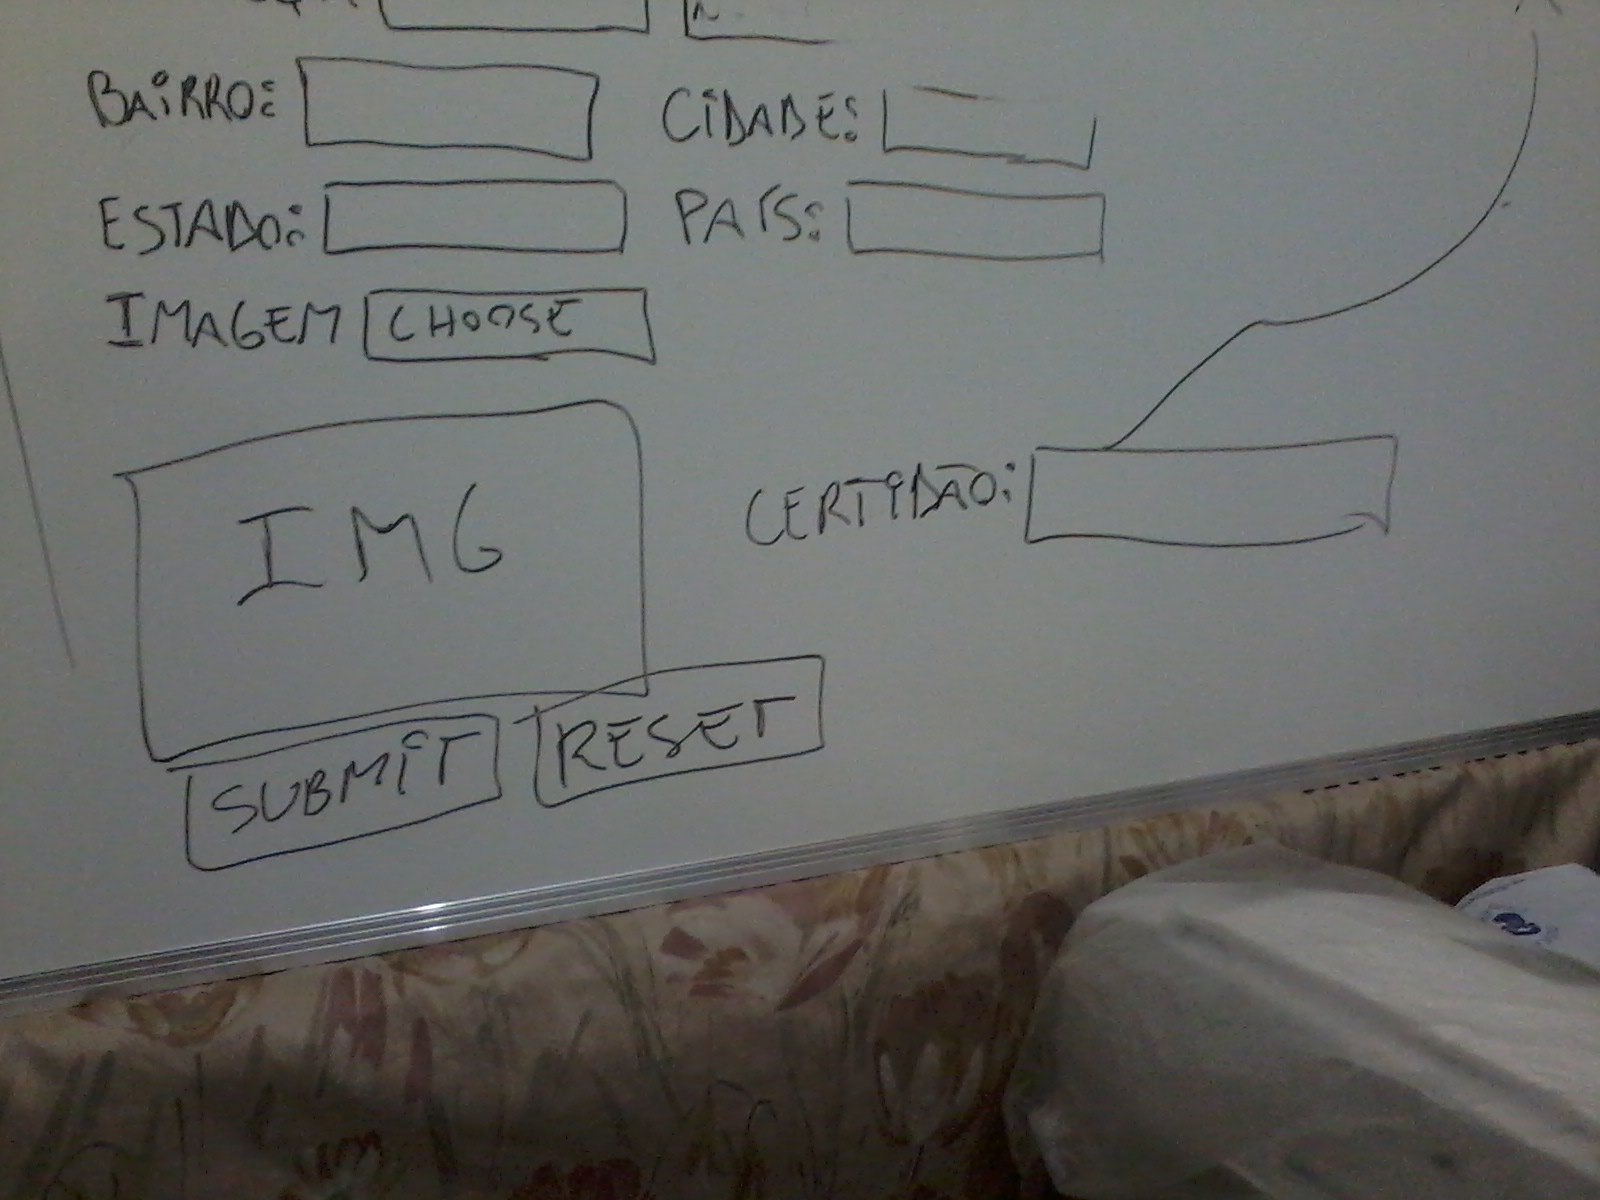 BAIRRO: CIDADE:
ESTADO: PAÍS:
IMAGEM CHOOSE
IMG
CERTIDÃO:
SUBMIT RESET